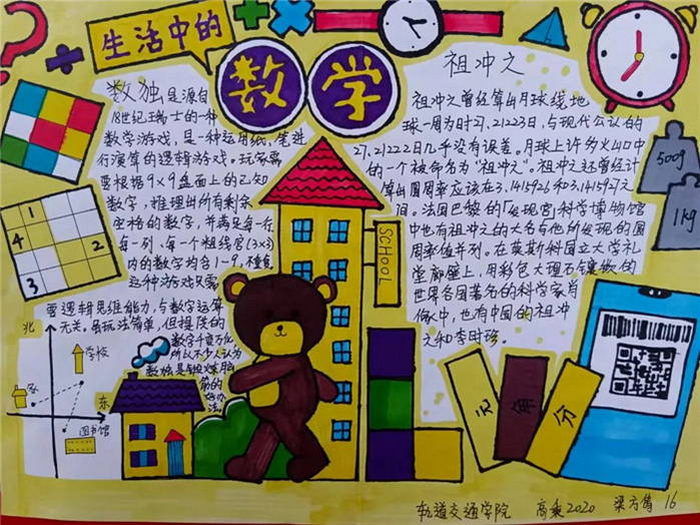 生活中的
数学
数独是源自
18世纪瑞士的一种
数学游戏,是一种运用纸、笔进
行演算的逻辑游戏。玩家需
要根据9×9盘面上的已知
数字,推理出所有剩余
空格的数字,并满足每一行
每一列、每一个粗线宫(3×3)
内的数字均含1-9,不重复
这种游戏只需
要逻辑思维能力,与数字运算
无关。虽玩法简单,但提供的
数字千变万化
所以不少人认为
数独是锻炼脑
筋的
好办
法。
祖冲之
祖冲之曾经算出月球绕地
球一周为时27.21223日,与现代公认的
27.21222日几乎没有误差。月球上许多火山口中
的一个被命名为“祖冲之”。祖冲之还曾经计
算出圆周率应该在3.1415926和3.1415927之
间。法国巴黎的「发现宫」科学博物馆
中也有祖冲之的大名与他所发现的圆
周率值并列。在莫斯科国立大学礼
堂廊壁上,用彩色大理石镶嵌的
世界各国著名的科学家肖
像中,也有中国的祖冲
之和李时珍。
500g
1kg
SCHOOL
1
4
2
3
北
学校
家
东
图书馆
元
角
分
轨道交通学院 高乘2020 梁方倩 16